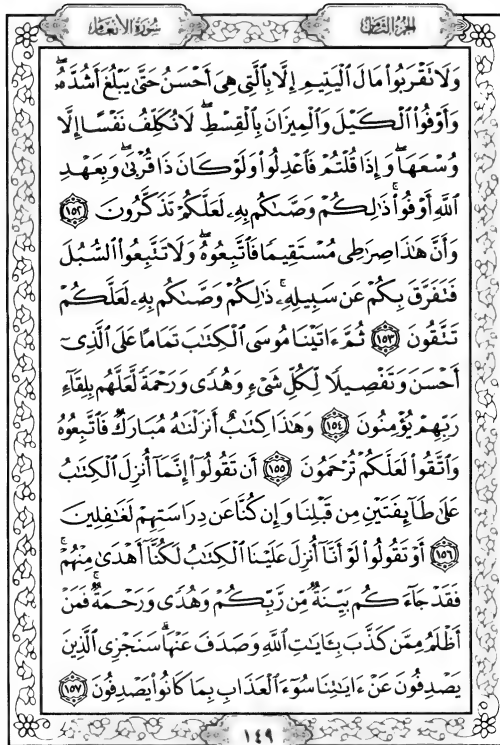 سُورَةُ الأَنْعَامِ
الجُزْءُ الثَّامِنُ
وَلَا تَقْرَبُواْ مَالَ ٱلْيَتِيمِ إِلَّا بِٱلَّتِى هِىَ أَحْسَنُ حَتَّىٰ يَبْلُغَ أَشُدَّهُۥۖ
وَأَوْفُواْ ٱلْكَيْلَ وَٱلْمِيزَانَ بِٱلْقِسْطِۖ لَا نُكَلِّفُ نَفْسًا إِلَّا
وُسْعَهَاۖ وَإِذَا قُلْتُمْ فَٱعْدِلُواْ وَلَوْ كَانَ ذَا قُرْبَىٰۖ وَبِعَهْدِ
ٱللَّهِ أَوْفُواْۚ ذَٰلِكُمْ وَصَّىٰكُم بِهِۦ لَعَلَّكُمْ تَذَكَّرُونَ ١٥٢
وَأَنَّ هَٰذَا صِرَٰطِى مُسْتَقِيمًا فَٱتَّبِعُوهُۖ وَلَا تَتَّبِعُواْ ٱلسُّبُلَ
فَتَفَرَّقَ بِكُمْ عَن سَبِيلِهِۦۚ ذَٰلِكُمْ وَصَّىٰكُم بِهِۦ لَعَلَّكُمْ
تَتَّقُونَ ١٥٣ ثُمَّ ءَاتَيْنَا مُوسَى ٱلْكِتَٰبَ تَمَامًا عَلَى ٱلَّذِىٓ
أَحْسَنَ وَتَفْصِيلًا لِّكُلِّ شَىْءٍ وَهُدًى وَرَحْمَةً لَّعَلَّهُم بِلِقَآءِ
رَبِّهِمْ يُؤْمِنُونَ ١٥٤ وَهَٰذَا كِتَٰبٌ أَنزَلْنَٰهُ مُبَارَكٌ فَٱتَّبِعُوهُ
وَٱتَّقُواْ لَعَلَّكُمْ تُرْحَمُونَ ١٥٥ أَن تَقُولُوٓاْ إِنَّمَآ أُنزِلَ ٱلْكِتَٰبُ
عَلَىٰ طَآئِفَتَيْنِ مِن قَبْلِنَا وَإِن كُنَّا عَن دِرَاسَتِهِمْ لَغَٰفِلِينَ
١٥٦ أَوْ تَقُولُواْ لَوْ أَنَّآ أُنزِلَ عَلَيْنَا ٱلْكِتَٰبُ لَكُنَّآ أَهْدَىٰ مِنْهُمْۚ
فَقَدْ جَآءَكُم بَيِّنَةٌ مِّن رَّبِّكُمْ وَهُدًى وَرَحْمَةٌۚ فَمَنْ
أَظْلَمُ مِمَّن كَذَّبَ بِـَٔايَٰتِ ٱللَّهِ وَصَدَفَ عَنْهَاۗ سَنَجْزِى ٱلَّذِينَ
يَصْدِفُونَ عَنْ ءَايَٰتِنَا سُوٓءَ ٱلْعَذَابِ بِمَا كَانُواْ يَصْدِفُونَ ١٥٧
١٤٩